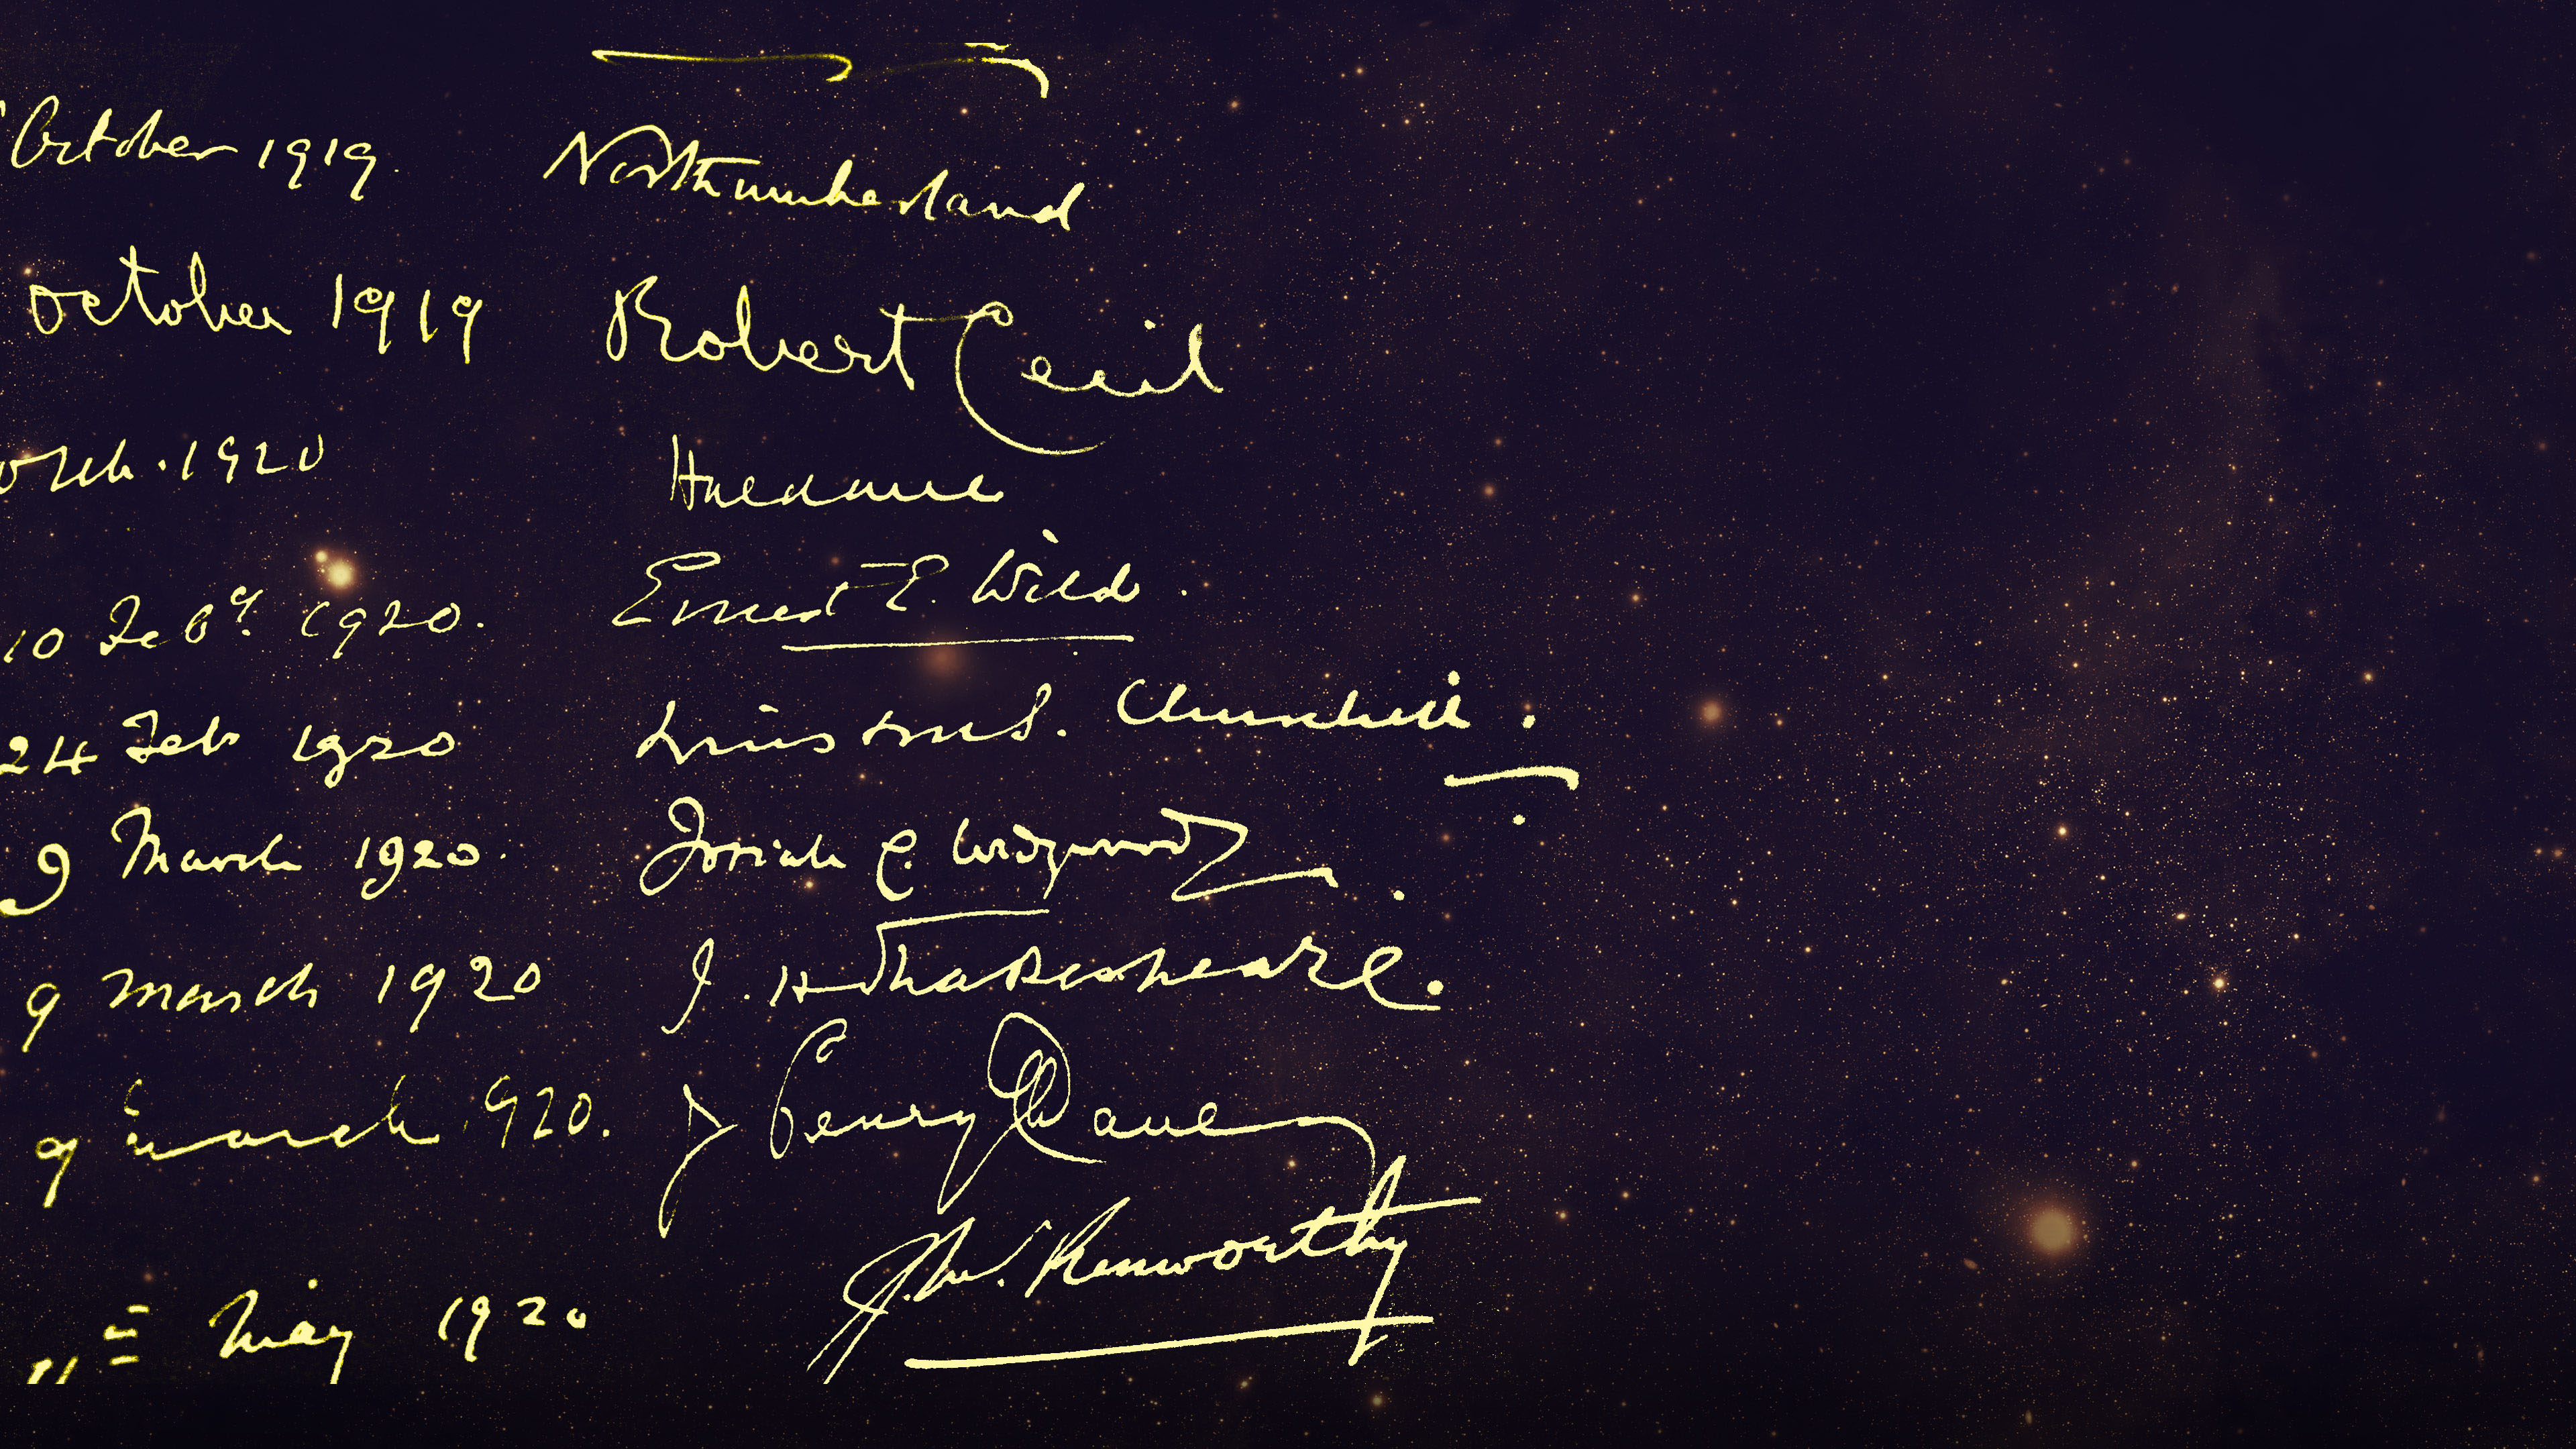 October 1919. Northumberland
October 1919 Robert Cecil
1920 Haldane
10 Feby. 1920. Ernest E. Wild.
24 Feb 1920 Winston S. Churchill.
9 March 1920. Josiah C. Wedgwood.
9 March 1920 J. H Shakespeare.
9 March 1920. Henry
May 1920 J. M. Kenworthy